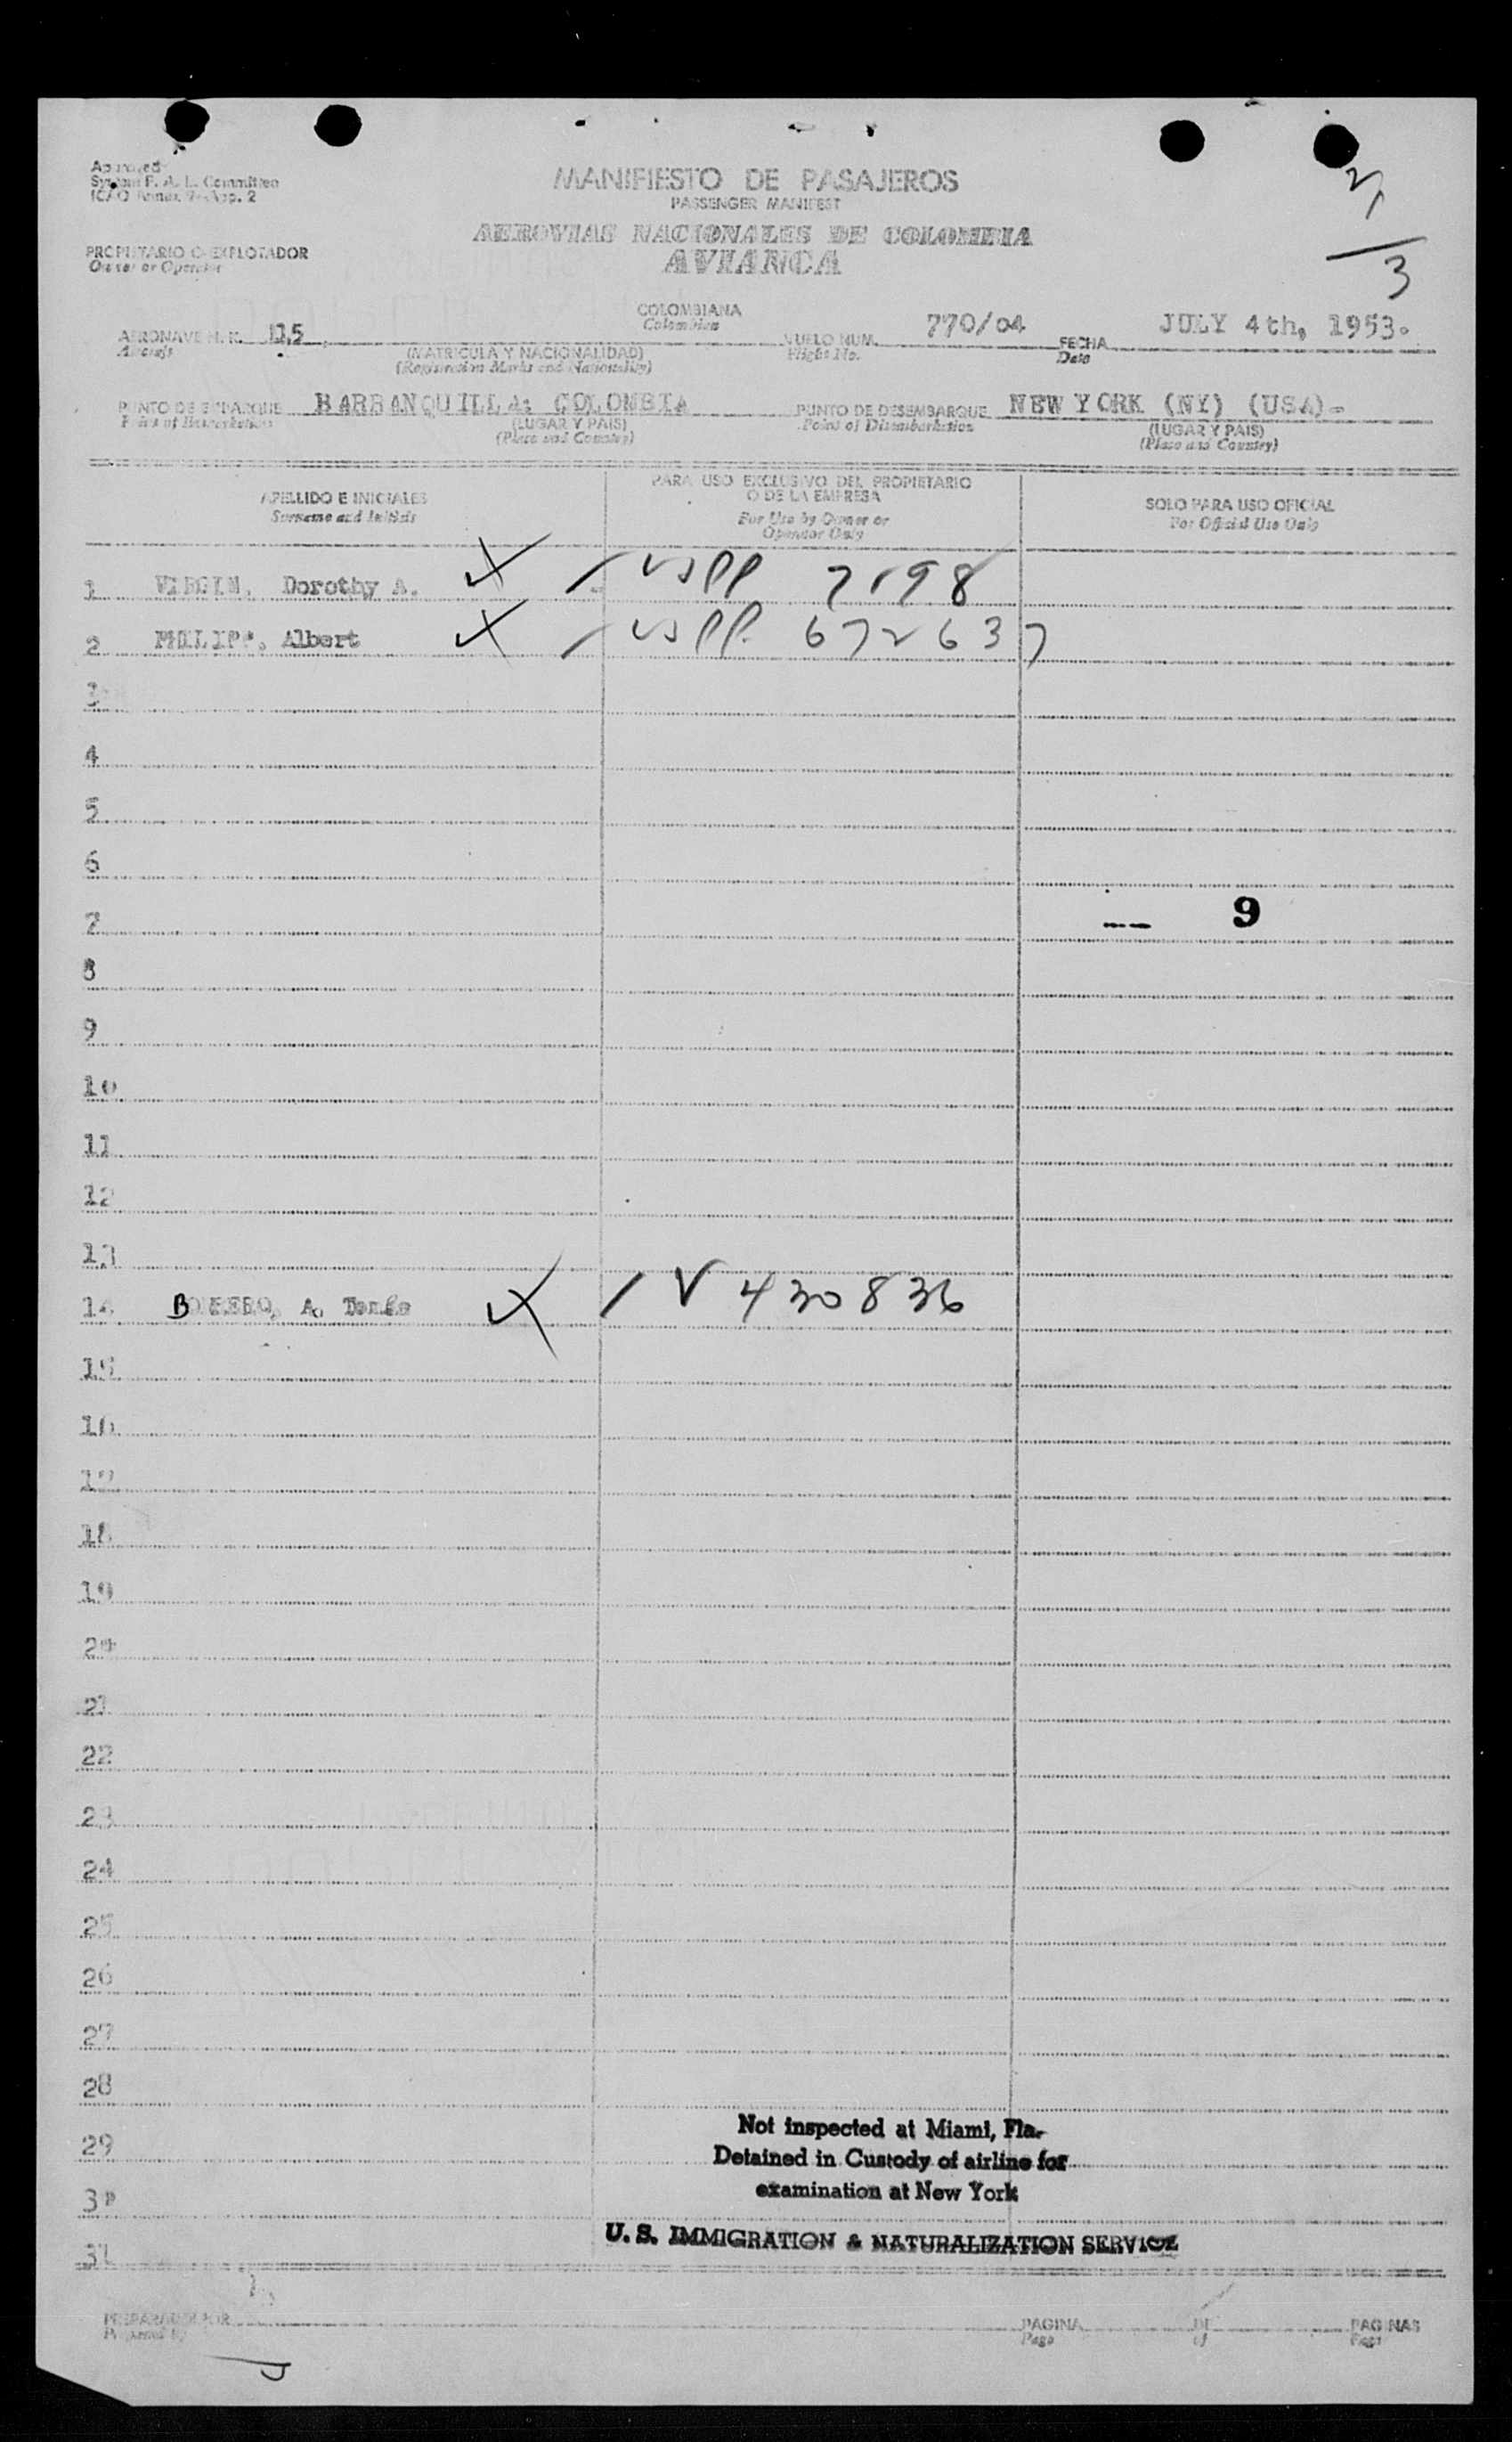 Approved
System F. A. L. Committee
ICAO Annex 9-App. 2
MANIFIESTO DE PASAJEROS
PASSENGER MANIFEST
2/
3
AEROVIAS NACIONALES DE COLOMBIA
AVIANCA
PROPIETARIO O EXPLOTADOR
Owner or Operator
COLOMBIANA
Colombian
AERONAVE H. K. 115
Aircraft
(MATRICULA Y NACIONALIDAD)
(Registration Marks and Nationality)
VUELO NUM. 770/04
Flight No.
FECHA JULY 4th, 1953.
Date
PUNTO DE EMBARQUE BARRANQUILLA: COLOMBIA
Point of Embarkation
(LUGAR Y PAIS)
(Place and Country)
PUNTO DE DESEMBARQUE NEW YORK (NY) (USA)-
Point of Disembarkation
(LUGAR Y PAIS)
(Place and Country)
APELLIDO E INICIALES
Surname and Initials
PARA USO EXCLUSIVO DEL PROPIETARIO
O DE LA EMPRESA
For Use by Owner or
Operator Only
SOLO PARA USO OFICIAL
For Official Use Only
1 VIRGIN, Dorothy A. USPP 7198
2 PHILIPP, Albert USPP. 672637
3
4
5
6
7 9
8
9
10
11
12
13
14 BORRERO, A. Tomás V 430836
15
16
17
18
19
20
21
22
23
24
25
26
27
28
Not inspected at Miami, Fla.
29 Detained in Custody of airline for
examination at New York
30
U. S. IMMIGRATION & NATURALIZATION SERVICE
31
PREPARADO POR
Prepared by
PAGINA DE PAGINAS
Page of Page